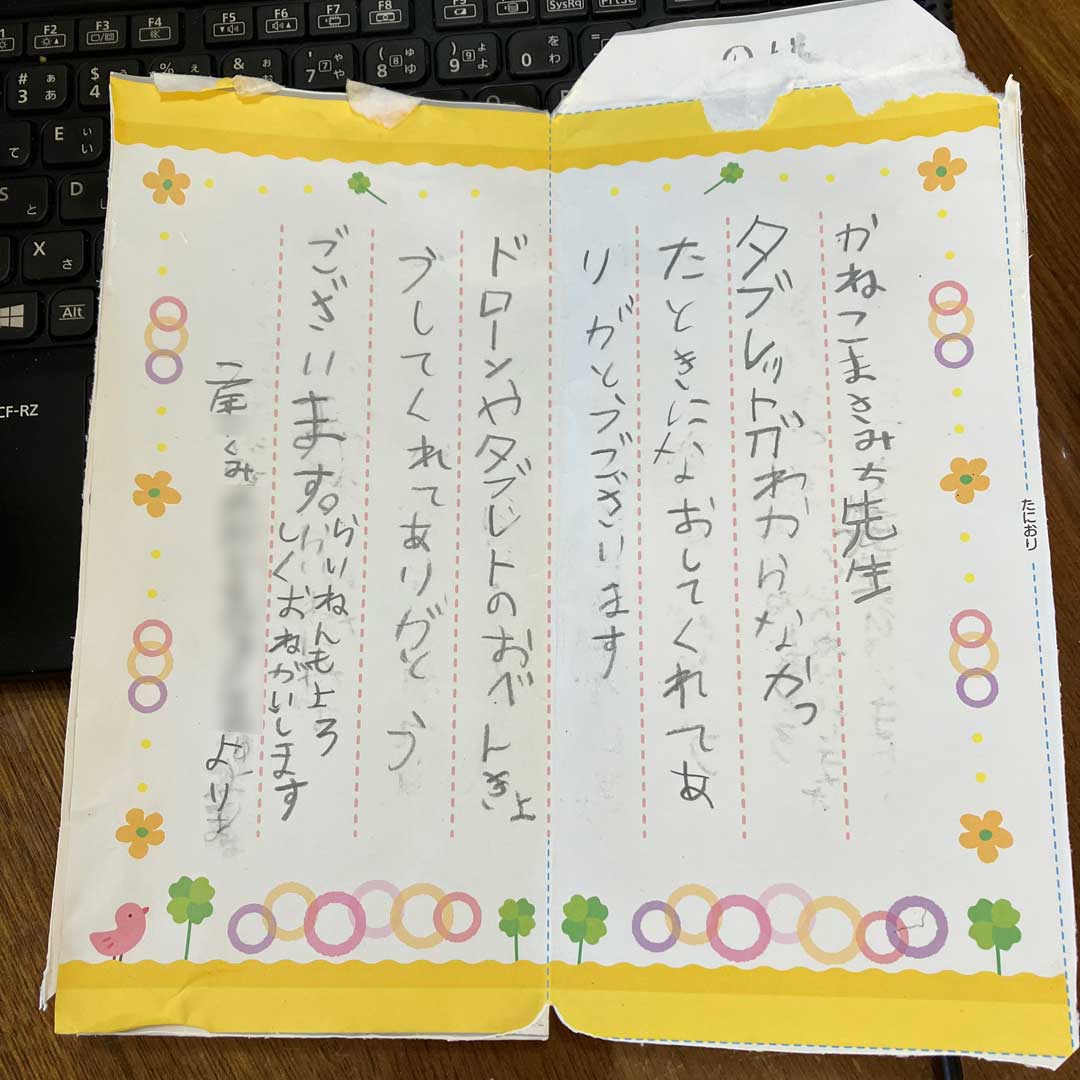 かねこまさみち先生
タブレットがわからなかっ
たときになおしてくれてあ
りがとうございます
ドローンやタブレトのおべ
うしてくれてありがとう
ございます。らいねんも上ろ
しくおねがいします
くみ
より
たにおり
のり
F2
F3
F4
F5
F6
F7
F8
SysRq
PrtSc
# 3 あ
$ 4
& 6 お
' 7 や
( 8 ゆ
) 9 よ
0 を わ
E い
S と
D し
X さ
Alt
CF-RZ